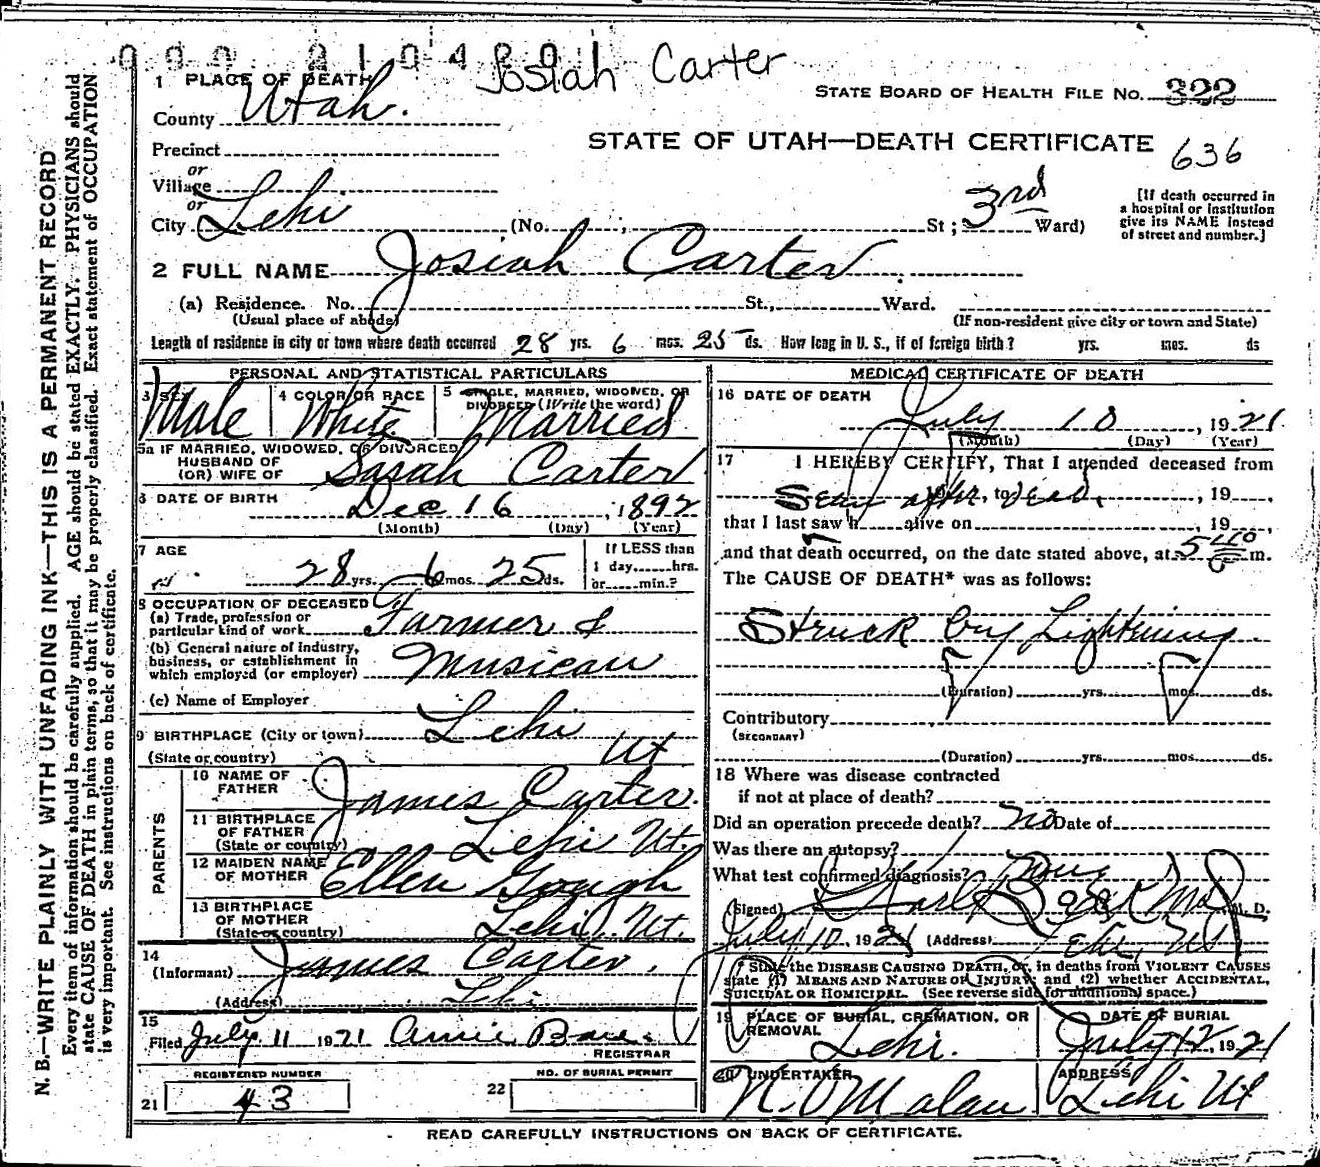 000 2104801
Josiah Carter
1 PLACE OF DEATH
County Utah.
STATE BOARD OF HEALTH FILE NO. 322
STATE OF UTAH—DEATH CERTIFICATE 636
Precinct
or
Village
or
City Lehi (No. ; St ; 3rd Ward)
[If death occurred in
a hospital or institution
give its NAME instead
of street and number.]
2 FULL NAME Josiah Carter
(a) Residence. No. St., Ward.
(Usual place of abode) (If non-resident give city or town and State)
Length of residence in city or town where death occurred 28 yrs. 6 mos. 25 ds. How long in U. S., if of foreign birth? yrs. mos. ds
PERSONAL AND STATISTICAL PARTICULARS
3 SEX Male
4 COLOR OR RACE White
5 SINGLE, MARRIED, WIDOWED, OR
DIVORCED (Write the word)
Married
5a IF MARRIED, WIDOWED, OR DIVORCED
HUSBAND OF
(OR) WIFE OF Sarah Carter
6 DATE OF BIRTH
Dec 16, 1892
(Month) (Day) (Year)
7 AGE
28 yrs. 6 mos. 25 ds.
If LESS than
1 day hrs.
or min.?
8 OCCUPATION OF DECEASED
(a) Trade, profession or
particular kind of work Farmer &
(b) General nature of industry,
business, or establishment in
which employed (or employer) Musican
(c) Name of Employer
9 BIRTHPLACE (City or town) Lehi
(State or country) Ut
PARENTS
10 NAME OF
FATHER James Carter.
11 BIRTHPLACE
OF FATHER
(State or country) Lehi Ut.
12 MAIDEN NAME
OF MOTHER Ellen Gough
13 BIRTHPLACE
OF MOTHER
(State or country) Lehi Ut.
14
(Informant) James Carter.
(Address) Lehi
15
Filed July 11 1921 Annie
REGISTRAR
REGISTERED NUMBER
21 43
NO. OF BURIAL PERMIT
22
MEDICAL CERTIFICATE OF DEATH
16 DATE OF DEATH
July 10, 1921
(Month) (Day) (Year)
17 I HEREBY CERTIFY, That I attended deceased from
Seen after, to dead, 19
that I last saw h alive on , 19
and that death occurred, on the date stated above, at 5 m.
The CAUSE OF DEATH* was as follows:
Struck by Lightning.
(Duration) yrs. mos. ds.
Contributory
(SECONDARY)
(Duration) yrs. mos. ds.
18 Where was disease contracted
if not at place of death?
Did an operation precede death? no Date of
Was there an autopsy?
What test confirmed diagnosis?
(Signed) M. D.
July 10, 1921 (Address) Lehi, Ut
* State the DISEASE CAUSING DEATH, or, in deaths from VIOLENT CAUSES
state (1) MEANS AND NATURE OF INJURY; and (2) whether ACCIDENTAL,
SUICIDAL or HOMICIDAL. (See reverse side for additional space.)
19 PLACE OF BURIAL, CREMATION, OR
REMOVAL Lehi.
DATE OF BURIAL
July 12, 1921
20 UNDERTAKER
N. O Malan
ADDRESS
Lehi Ut
READ CAREFULLY INSTRUCTIONS ON BACK OF CERTIFICATE.
N. B.—WRITE PLAINLY WITH UNFADING INK—THIS IS A PERMANENT RECORD
Every item of information should be carefully supplied. AGE should be stated EXACTLY. PHYSICIANS should
state CAUSE OF DEATH in plain terms, so that it may be properly classified. Exact statement of OCCUPATION
is very important. See instructions on back of certificate.